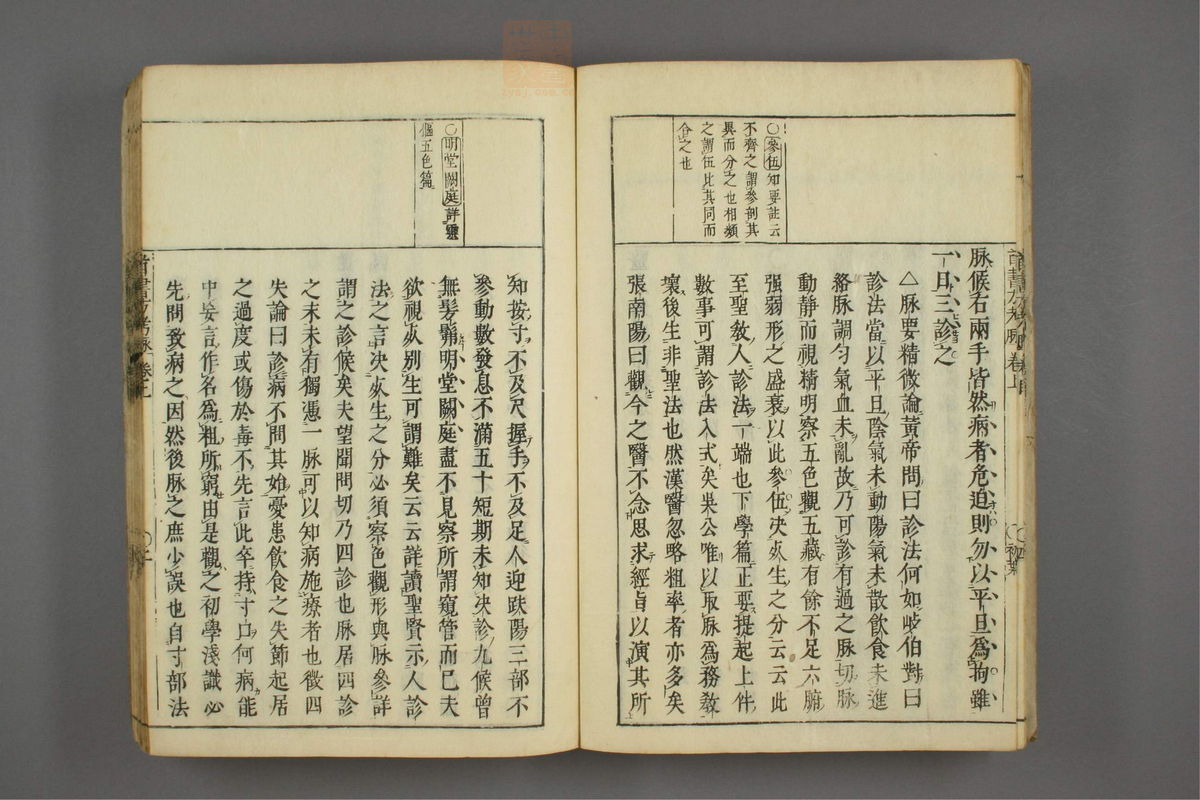 ○參伍知要註云
不齊之謂參剖其
異而分之也相類
之謂伍比其同而
合之也
脉候右兩手皆然病者危迫則勿以平旦爲拘雖
一日三診之
△脉要精微論黃帝問曰診法何如岐伯對曰
診法當以平旦陰氣未動陽氣未散飲食未進
絡脉調勻氣血未亂故乃可診有過之脉切脉
動靜而視精明察五色觀五藏有餘不足六腑
强弱形之盛衰以此參伍决死生之分云云此
至聖敎人診法一端也下學篇正要提起上件
數事可謂診法入式矣果公唯以取脉爲務敎
壞後生非聖法也然漢醫忽略粗率者亦多矣
張南陽曰觀今之醫不念思求經旨以演其所
○明堂闕庭詳靈
樞五色篇
知按寸不及尺握手不及足人迎趺陽三部不
參動數發息不滿五十短期未知决診九候曾
無髣髴明堂闕庭盡不見察所謂窺管而已夫
欲視死別生可謂難矣云云詳讀聖賢示人診
法之言决死生之分必須察色觀形與脉參詳
謂之診候矣夫望聞問切乃四診也脉居四診
之末未有獨憑一脉可以知病施療者也徵四
失論曰診病不問其始憂患飲食之失節起居
之過度或傷於毒不先言此卒持寸口何病能
中妄言作名爲粗所窮由是觀之初學淺識必
先問致病之因然後脉之庶少誤也自寸部法